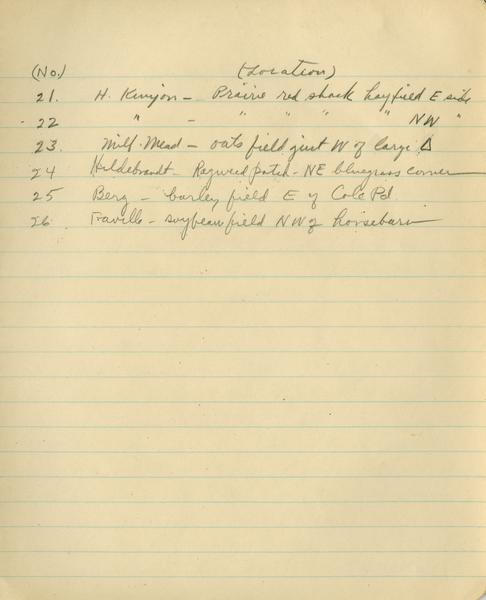 (No.) (Location)
21. H. Kinyon - Prairie red shack hayfield E side
22 " - " " " " NW "
23. Milf. Mead - oats field just W of large Δ
24 Hildebrandt - Ragweed patch - NE bluegrass corner
25 Berg - barley field E of Cole Rd.
26 Faville - soybean field NW of horsebarn